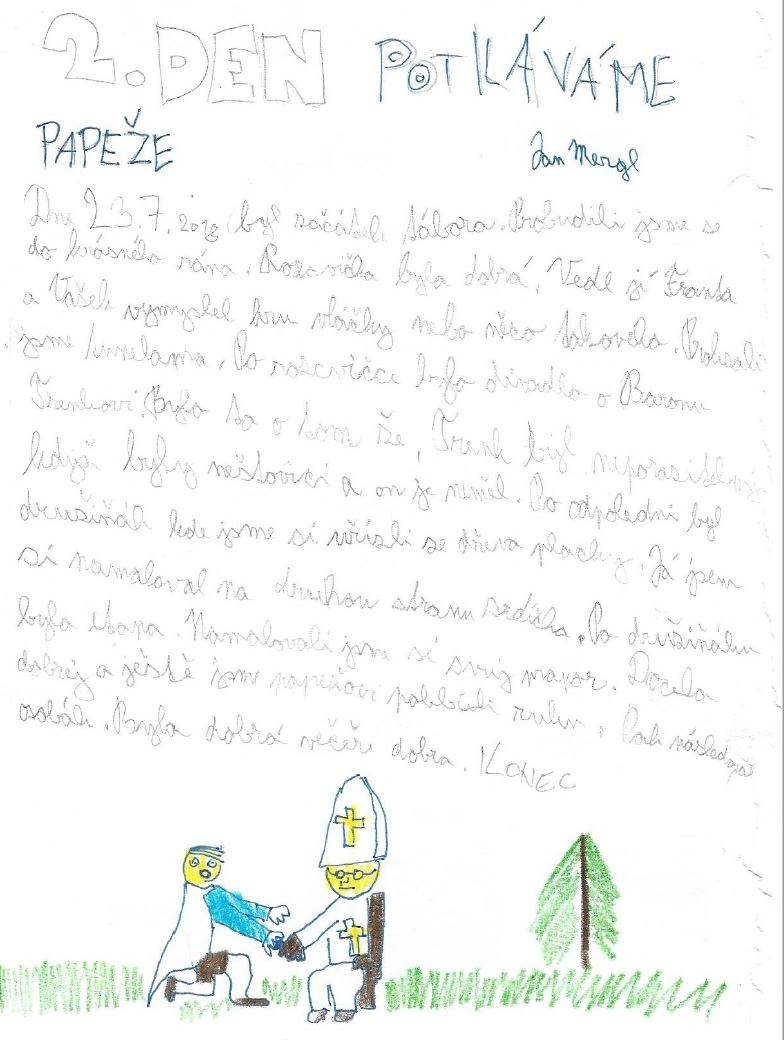 2. DEN POTKÁVÁME
PAPEŽE
Jan Mergl
Dne 23.7.2018 byl začátek tábora. Probudili jsme se
do krásného rána. Rozcvička byla dobrá. Vedl jí Franta
a Vašek vymyslel hru vláčky nebo něco takovéo.
jsme tunelama. Po rozcvičce bylo divadlo o Baronu
Trenkovi. Bylo to o tom že, Trenk byl neporazitelný
když byly neštovice a on je neměl. Po odpoledni byl
družiňák kde jsme si vřízli se dřeva placky. Já jsem
si namaloval na druhou stranu srdíčko. Po družiňáku
byla. Namalovali jsme si svůj. Docela
dobrej a ještě jsme papežovi políbili ruku. Pak následoval
osobák. Byla dobrá večeře dobra. KONEC